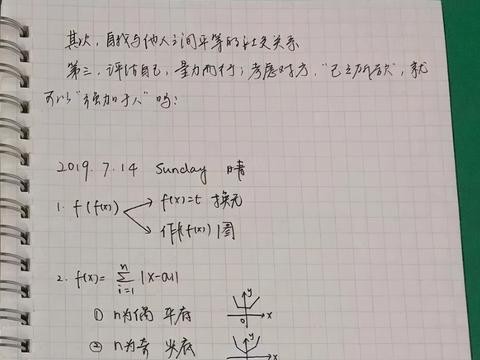 其次，自我与他人之间平等的社交关系
第三，评估自己，量力而行；考虑对方，"己之所欲"，就
可以"强加于人"吗？
2019.7.14 Sunday 晴
1. f(f(x))
f(x)=t 换元
作f(f(x))图
2. f(x)= ∑ |x-ai|
n
i=1
① n为偶 平底
y
0
x
② n为奇 尖底
y
x